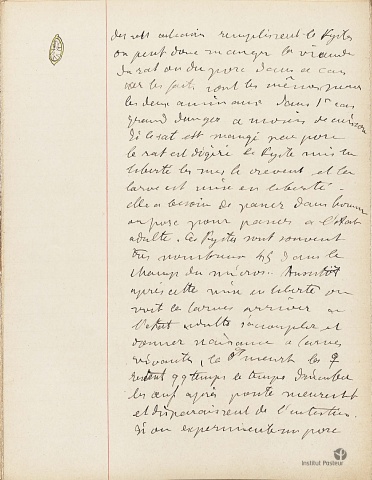 des sels calcaires remplissent le Kyste
on peut donc manger la viande
du rat ou du porc dans ce cas
car les faits sont les mêmes pour
les deux animaux dans 1er cas
grand danger à moins de cuisson
Si le rat est mangé par porc
le rat est digéré le Kyste mis en
liberté les crèvent et la
larve est mise en liberté -
elle a besoin de passer dans homme
ou porc pour passer à l'état
adulte. Ces Kystes sont souvent
très nombreux 45 dans le
champ du micros. Aussitôt
après cette mise en liberté on
voit les larves arriver à
l'état adulte s'accoupler et
donner naissance à larves
vivantes, le ♂ meurt les ♀
restent qq temps le temps
les œufs après ponte meurent
et disparaissent de l'intestin.
Si on expérimente un porc
Institut Pasteur